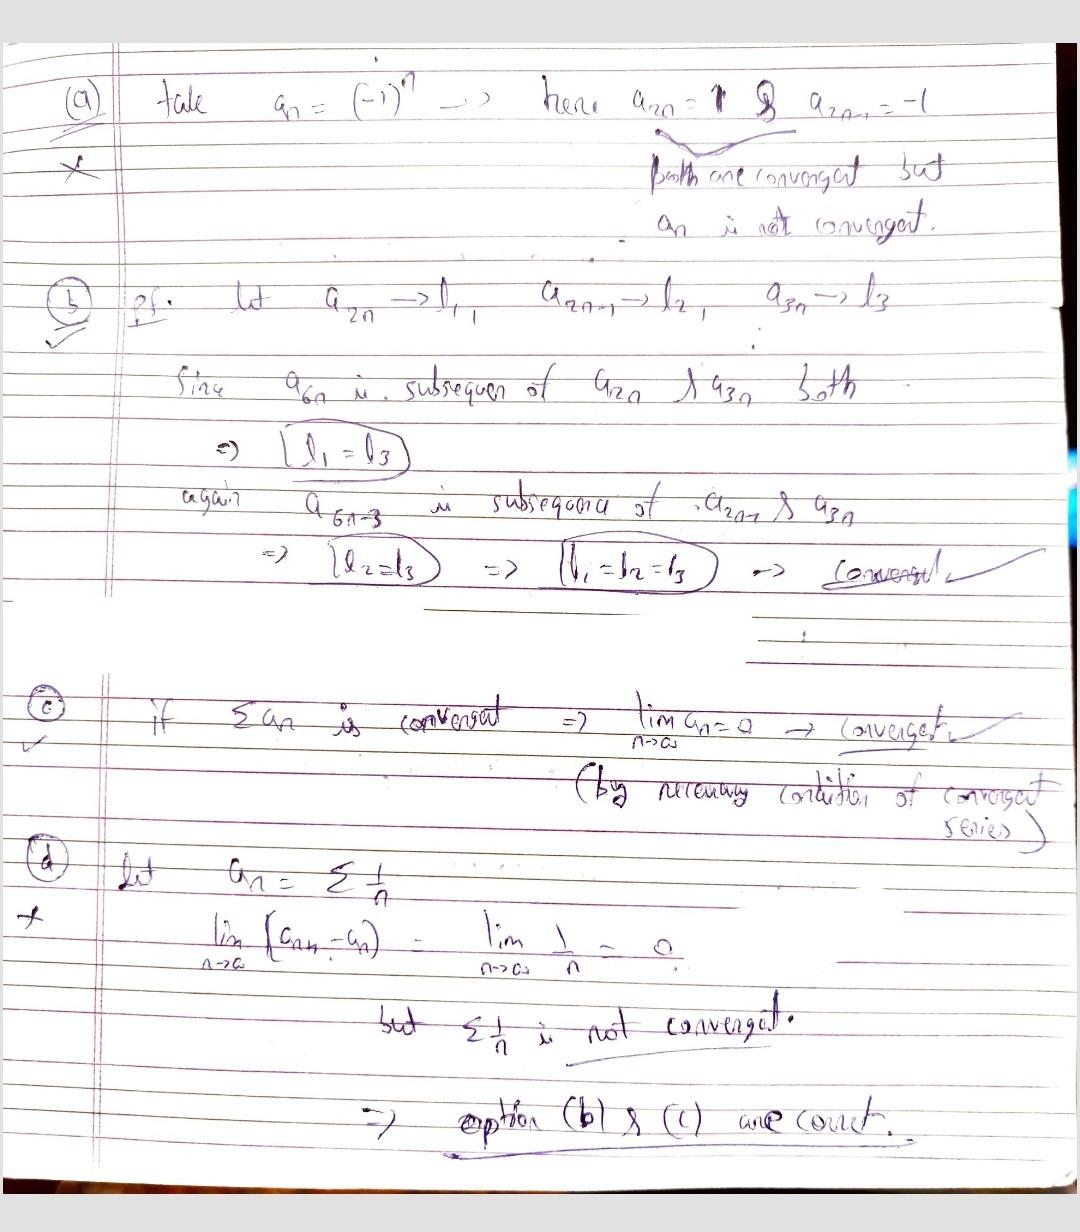 (a) take aₙ = (-1)ⁿ → here a₂ₙ = 1 & a₂ₙ₋₁ = -1
× both are convergat but
aₙ is not convergent.
(b) pf. let a₂ₙ → l₁, a₂ₙ₋₁ → l₂, a₃ₙ → l₃
✓
Since a₆ₙ is subsequen of a₂ₙ & a₃ₙ both
⇒ l₁ = l₃
again a₆ₙ₋₃ is subsequence of a₂ₙ₋₁ & a₃ₙ
⇒ l₂ = l₃ ⇒ l₁ = l₂ = l₃ → ✓
(c) if Σ aₙ is convergent ⇒ lim aₙ = 0 → convergent ✓
n→∞
✓ (by necessary condition of convergat
series)
(d) let aₙ = Σ 1/n
× lim (aₙ₊₁ - aₙ) = lim 1/n = 0
n→∞ n→∞
but Σ 1/n is not convergat.
⇒ option (b) & (c) are correct.